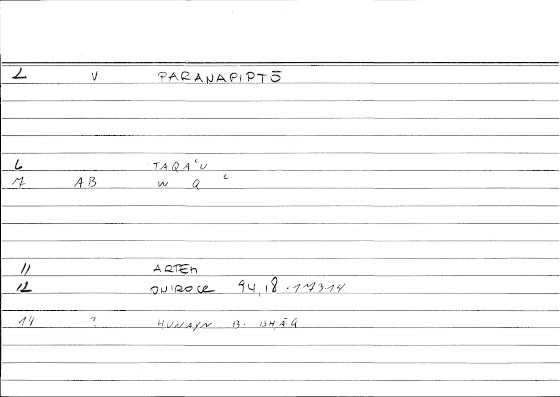 2 V PARANAPIPTŌ
6 TAQAʿU
7 AB W Q ʿ
11 ARTEM
12 ONIROCR 94,18 - 173 14
14 ? HUNAYN B. ISHĀQ